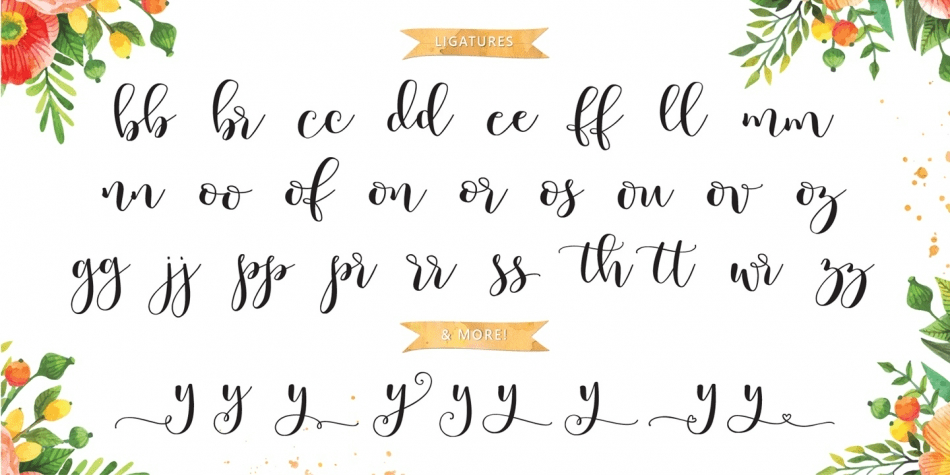 LIGATURES
bb br cc dd ee ff ll mm
nn oo of on or os ou ov oz
gg jj pp pr rr ss th tt wr zz
& MORE!
y y y y y y y y y